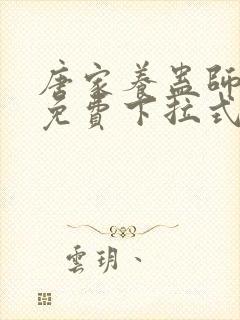 唐家養蠱師
免費下拉式
雲玥、